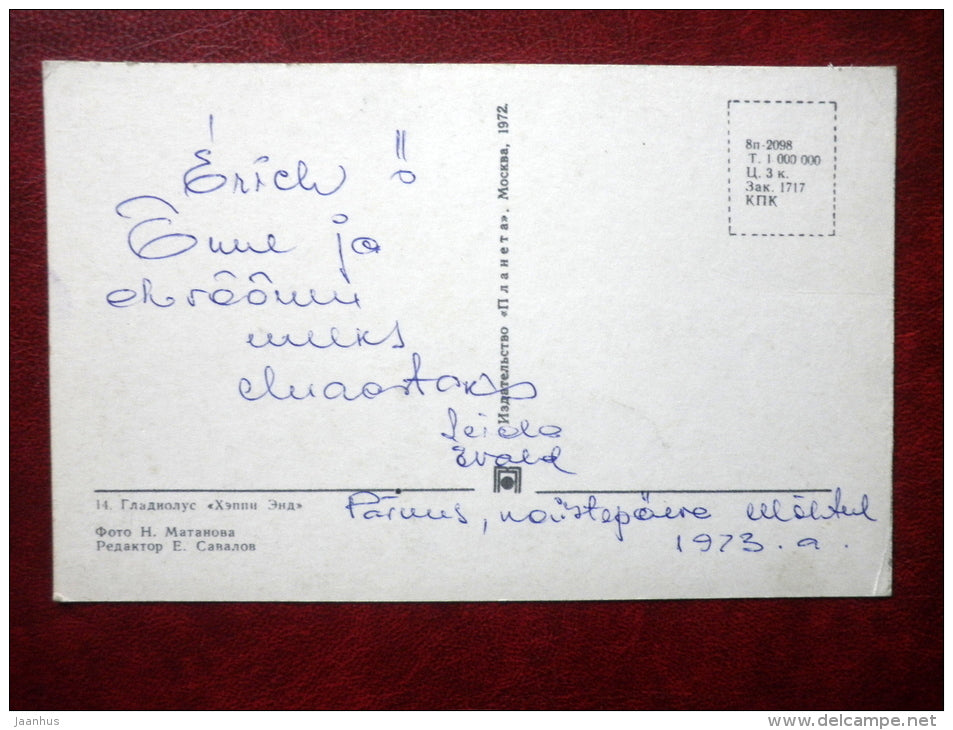 Erich !!
Õnne ja
elurõõmu
uueks
eluaastaks
Leida
Evald
Pärnus, naistepäeva õhtul
1973. a.
Издательство «Планета». Москва, 1972.
8п-2098
Т. 1 000 000
Ц. 3 к.
Зак. 1717
КПК
14. Гладиолус «Хэппи Энд»
Фото Н. Матанова
Редактор Е. Савалов
jaanhus
www.delcampe.net